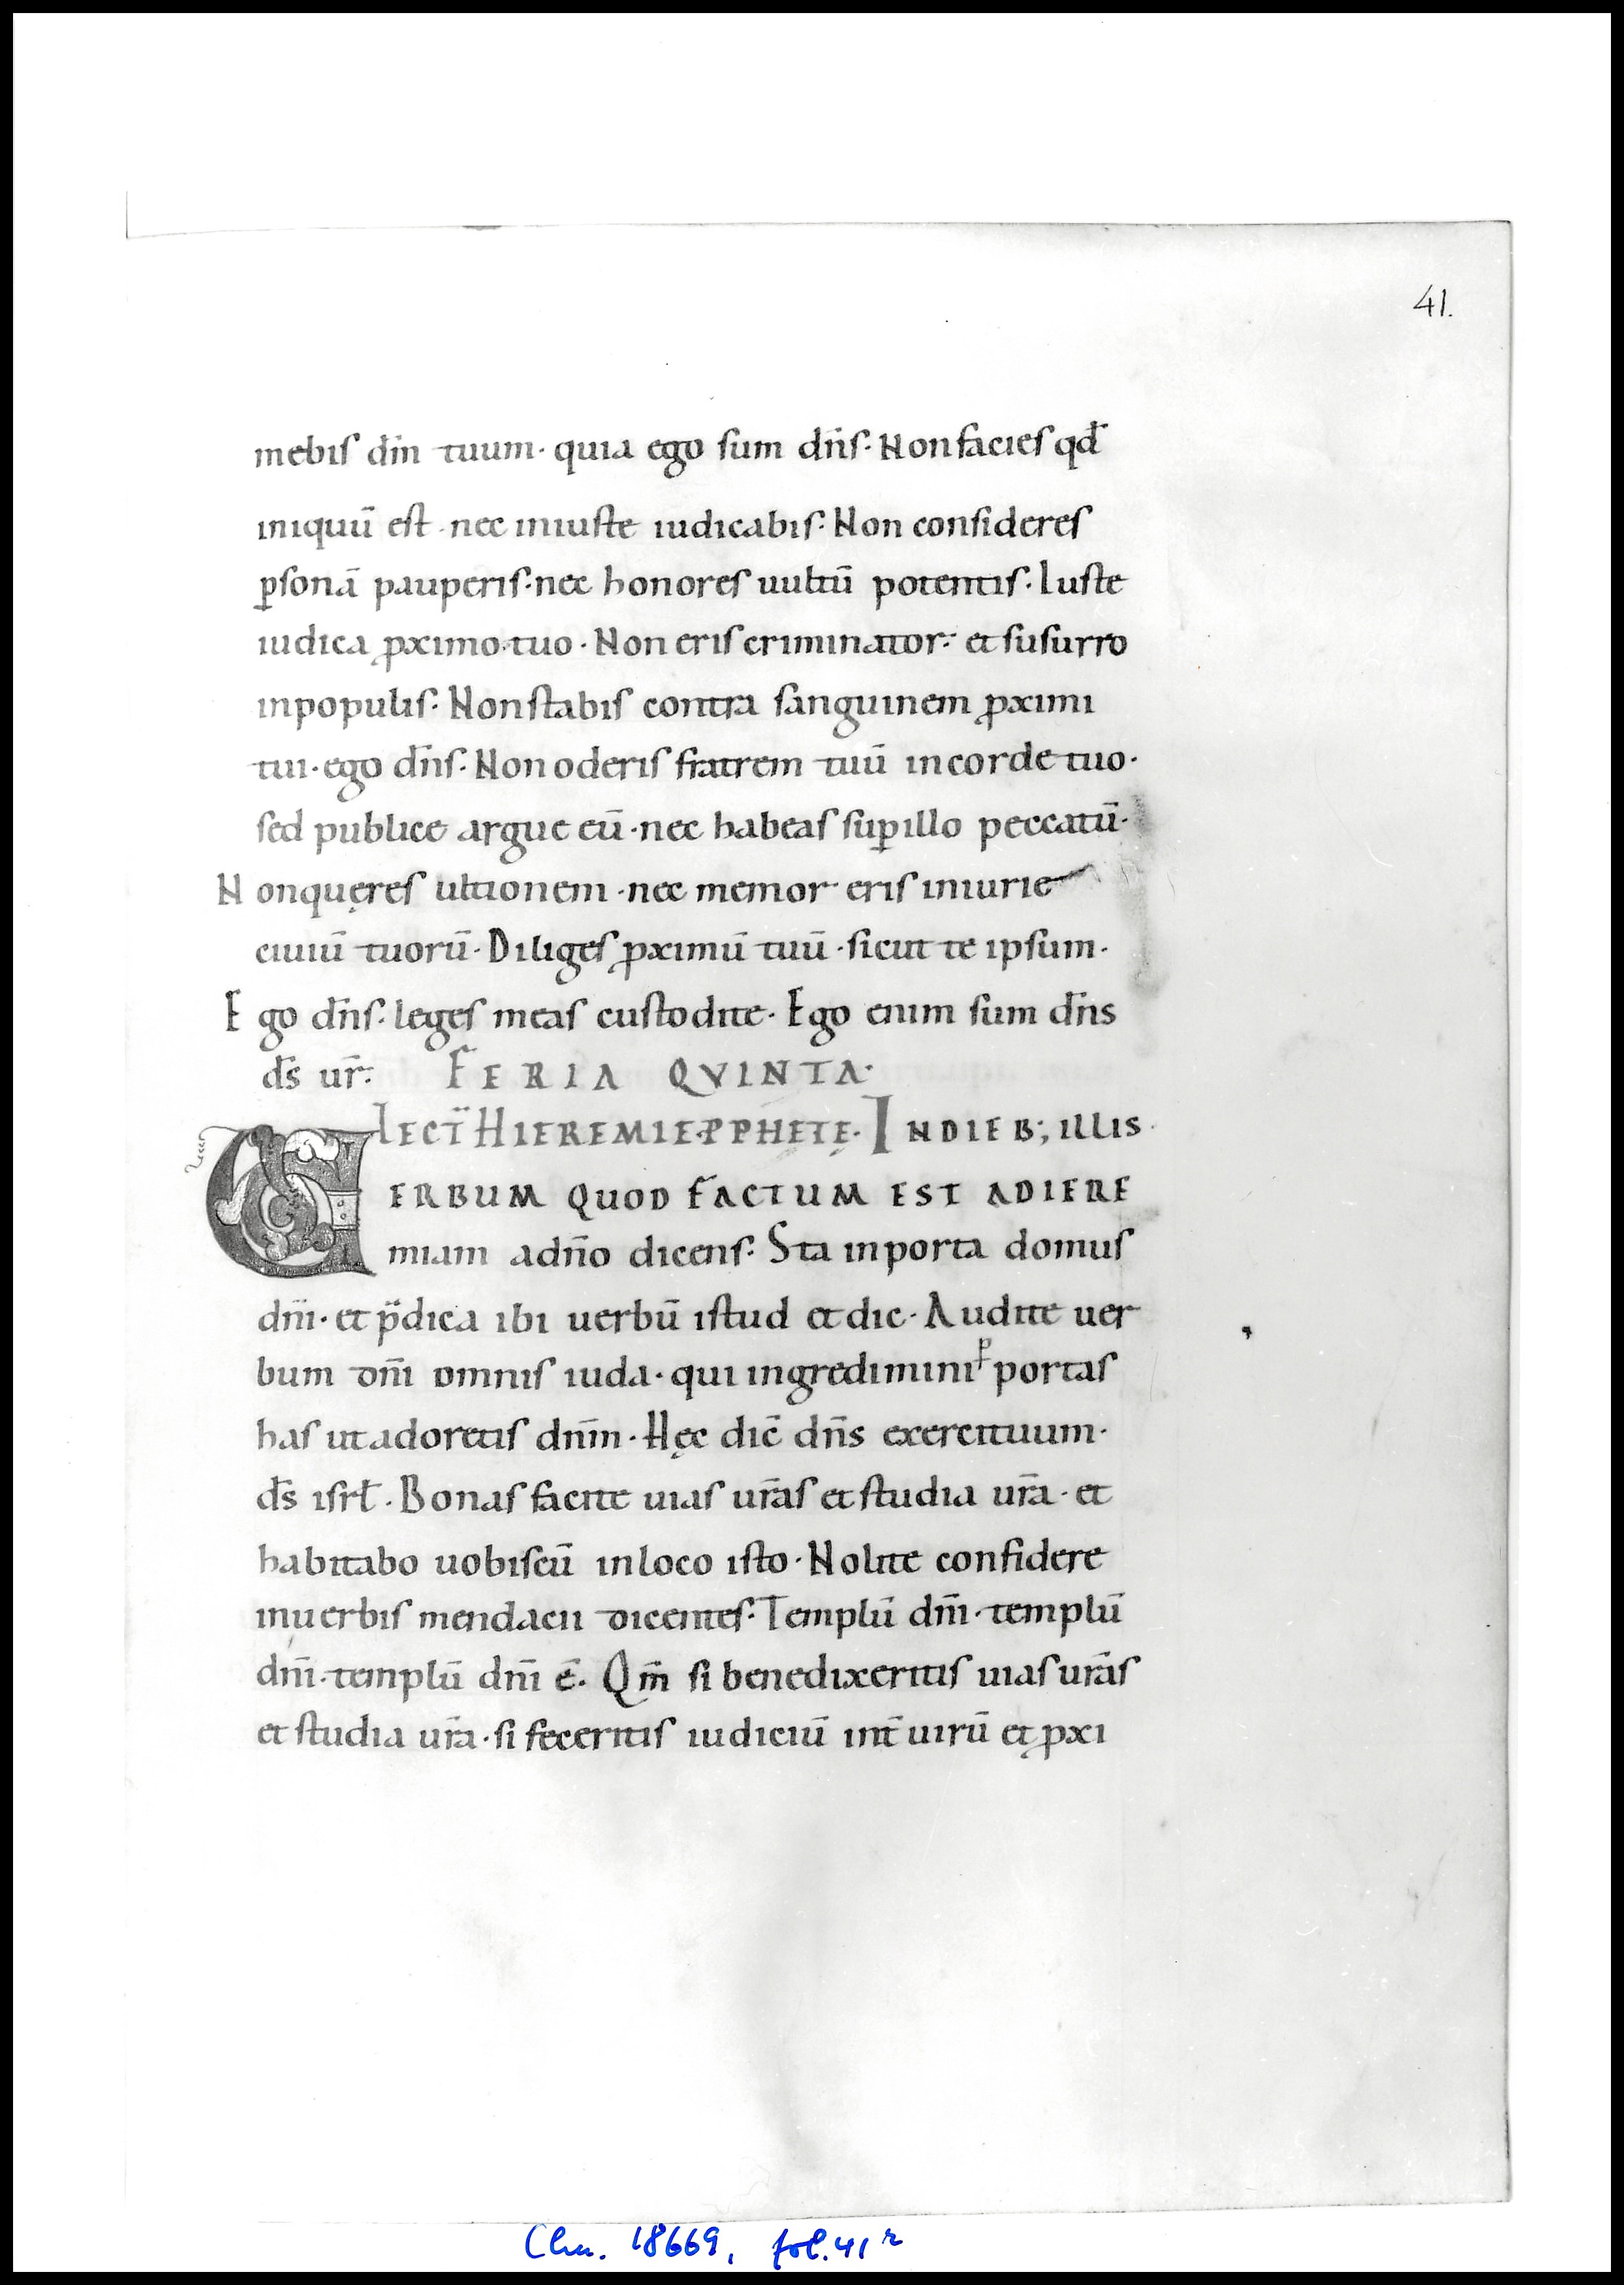 41.
mebis dm̄ tuum · quia ego sum dn̄s · Non facies qđ
iniquū est · nec iniuste iudicabis · Non consideres
ꝑsonā pauperis · nec honores uultū potentis · Iuste
iudica ꝓximo tuo · Non eris criminator · et susurro
inpopulis · Non stabis contra sanguinem ꝓximi
tui · ego dn̄s · Non oderis fratrem tuū incorde tuo ·
sed publice argue eū · nec habeas suꝑ illo peccatū ·
Non quęres ultionem · nec memor eris iniurie
ciuiū tuorū · Diliges ꝓximū tuū · sicut te ipsum ·
Ego dn̄s · leges meas custodite · Ego enim sum dn̄s
ds̄ ur̄ · FERIA QVINTA ·
LECT̄ HIEREMIE PPHETĘ · INDIEB; ILLIS ·
UERBUM QUOD FACTUM EST ADIERE
miam adn̄o dicens · Sta inporta domus
dn̄i · et p̄dica ibi uerbū istud et dic · Audite uer
bum dn̄i omnis iuda · qui ingredimini ꝑ portas
has ut adoretis dn̄m · Hęc dic̄ dn̄s exercituum ·
ds̄ isrł · Bonas facite uias ur̄as et studia ur̄a · et
habitabo uobiscū inloco isto · Nolite confidere
inuerbis mendacii dicentes · Templū dn̄i · templū
dn̄i · templū dn̄i ē · Qm̄ si benedixeritis uias ur̄as
et studia ur̄a · si feceritis iudiciū int̄ uirū et ꝓxi
Clm. 18669, fol. 41 r